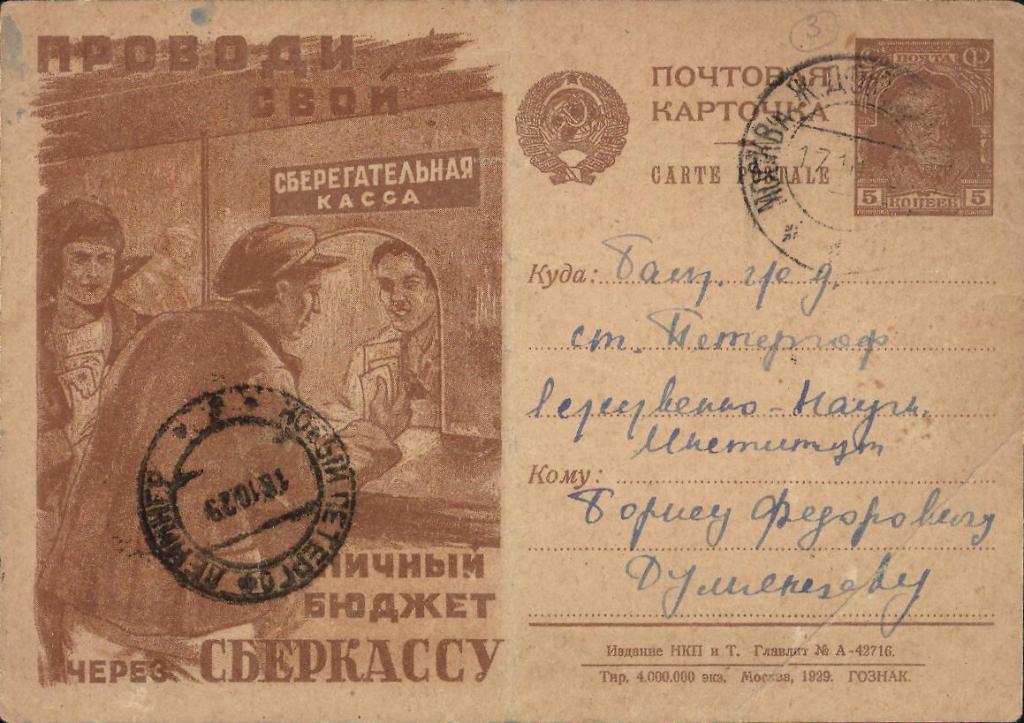 ПРОВОДИ
СВОЙ
СБЕРЕГАТЕЛЬНАЯ
КАССА
НИЧНЫЙ
БЮДЖЕТ
ЧЕРЕЗ СБЕРКАССУ
НОВЫЙ ПЕТЕРГОФ ЛЕНИНГР
18.10.29
3
ПОЧТОВАЯ
КАРТОЧКА
CARTE POSTALE
ПОЧТА
5 КОПЕЕК 5
МОСКВА
Куда:
ст. Петергоф
Науч.
Институт
Кому:
Борису Федоровичу
Издание НКП и Т. Главлит № А-42716.
Тир. 4.000.000 экз. Москва, 1929. ГОЗНАК.